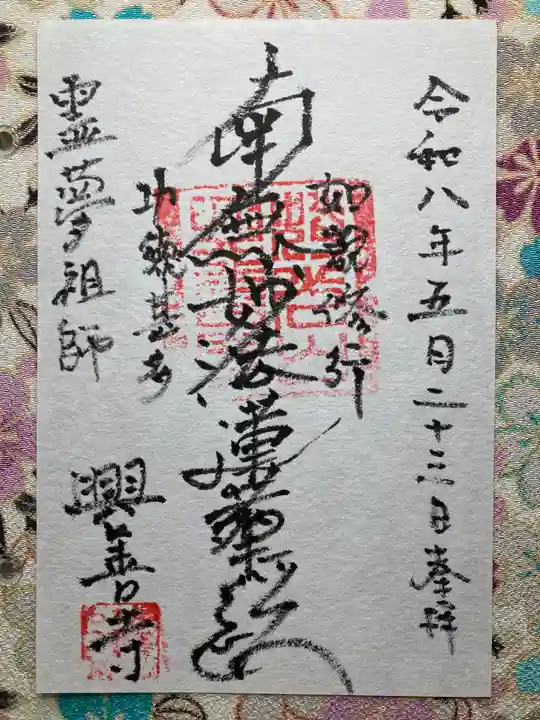 令和八年五月二十三日奉拝
如説修行
南無妙法蓮華経
功徳甚多
霊夢祖師
興善寺